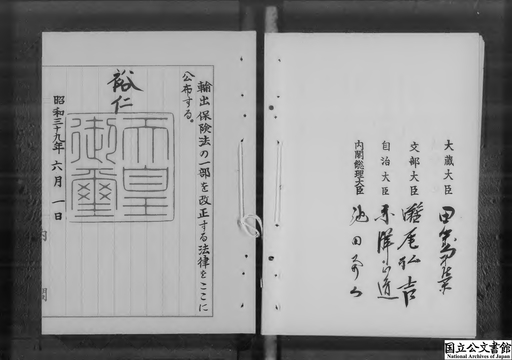 大蔵大臣 田中角榮
文部大臣 灘尾弘吉
自治大臣 赤澤正道
内閣総理大臣 池田勇人
輸出保険法の一部を改正する法律をここに
公布する。
裕仁
天皇
御璽
昭和三十九年六月一日
国立公文書館
National Archives of Japan